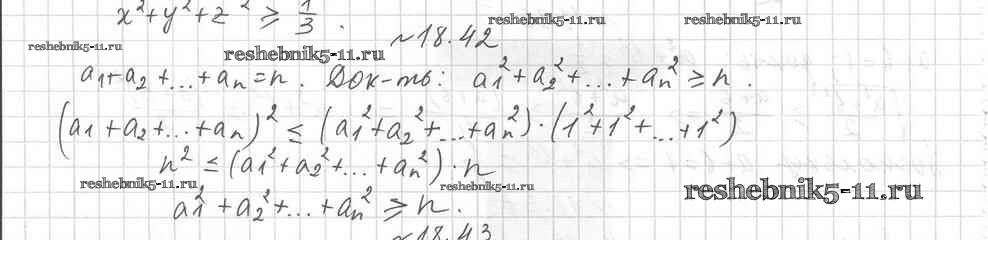 x² + y² + z² ≥ 1/3 .
reshebnik5-11.ru reshebnik5-11.ru
~18.42
reshebnik5-11.ru reshebnik5-11.ru
a₁+a₂+...+aₙ=n. Док-ть: a₁²+a₂²+...+aₙ² ≥ n.
(a₁+a₂+...+aₙ)² ≤ (a₁²+a₂²+...+aₙ²)·(1²+1²+...+1²)
n² ≤ (a₁²+a₂²+...+aₙ²)·n
reshebnik5-11.ru reshebnik5-11.ru reshebnik5-11.ru
a₁²+a₂²+...+aₙ² ≥ n.
~18.43